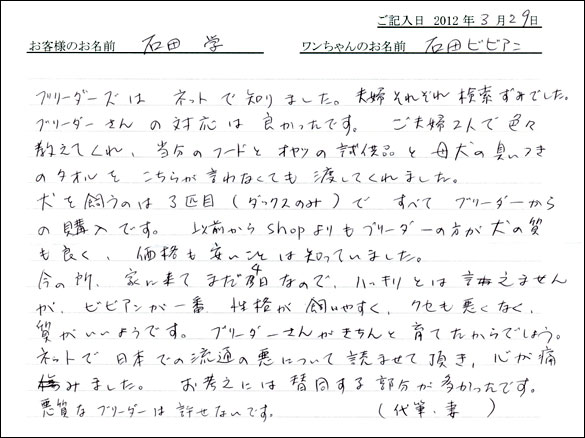 ご記入日 2012年3月29日
お客様のお名前 石田 学 ワンちゃんのお名前 石田ビビアン
ブリーダーズは ネットで知りました。夫婦それぞれ検索ずみでした。
ブリーダーさんの対応は良かったです。 ご夫婦2人で色々
教えてくれ、当分のフードとオヤツの試供品と母犬の臭いつき
のタオルを こちらが言わなくても渡してくれました。
犬を飼うのは3匹目(ダックスのみ)で すべて ブリーダーから
の購入です。 以前からshopよりもブリーダーの方が犬の質
も良く、価格も安いことは知っていました。
今の所、家に来てまだ4日なので、ハッキリとは言えません
が、ビビアンが一番 性格が飼いやすく、クセも悪くなく、
質がいいようです。 ブリーダーさんがきちんと育てたからでしょう。
ネットで日本での流通の悪について読ませて頂き、心が痛
みました。 お考えには賛同する部分が多かったです。
悪質なブリーダーは許せないです。 (代筆・妻)